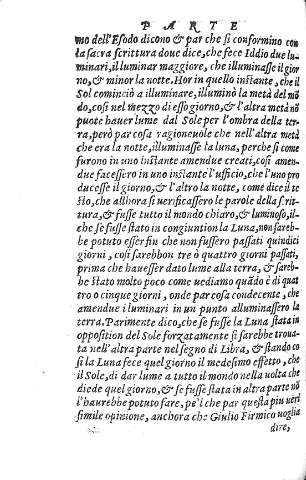 PARTE
mo dell'Esodo dicono & par che si conformino con
la sacra scrittura doue dice, che fece Iddio due lu-
minari, il luminar maggiore, che illuminasse il gior
no, & minor la notte. Hor in quello instante, che il
Sol cominciò a illuminare, illuminò la metà del mõ
do, cosi nel mezzo di esso giorno, & l'altra metà nõ
puote hauer lume dal Sole per l'ombra della ter-
ra, però par cosa ragioneuole che nell'altra metà
che era la notte, illuminasse la luna, perche si come
furono in uno instante amendue creati, cosi amen-
due facessero in uno instante l'ufficio, che l'uno pro
ducesse il giorno, & l'altro la notte, come dice il te
sto, che allhora si uerificassero le parole della scrit-
tura, & fusse tutto il mondo chiaro, & luminoso, il-
che se fusse stato in congiuntion la Luna, non fareb-
be potuto esser fin che non fussero passati quindici
giorni, cosi sarebbon tre ò quattro giorni passati,
prima che hauesser dato lume alla terra, & fareb-
be stato molto poco come uediamo quãdo è di quat
tro o cinque giorni, onde par cosa condecente, che
amendue i luminari in un punto alluminassero la
terra. Parimente dico, che se fusse la Luna stata in
opposition del Sole forzatamente si sarebbe troua-
ta nell'altra parte nel segno di Libra, & stando co
si la Luna fece quel giorno il medesimo effetto, che
il Sole, di dar lume a tutto il mondo nella uolta che
diede quel giorno, & se fusse stata in altra parte nõ
l'haurebbe potuto fare, pe'l che par questa piu ueri
simile opinione, anchora che Giulio Firmico uoglia
dire,